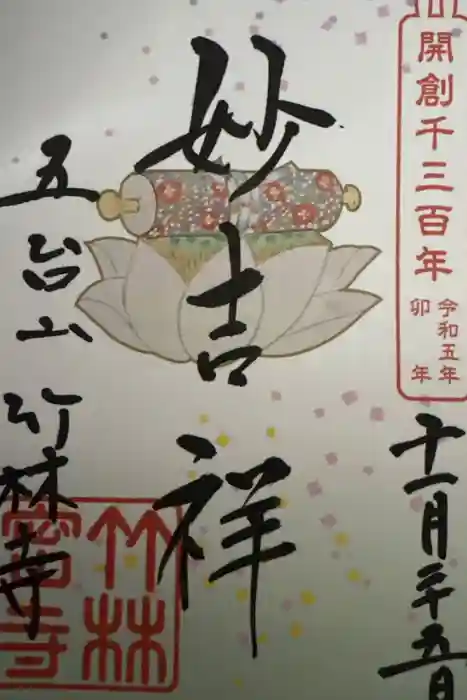 開創千三百年
令和五年
卯年
十一月二十五日
妙吉祥
五台山
竹林寺
竹林
寺